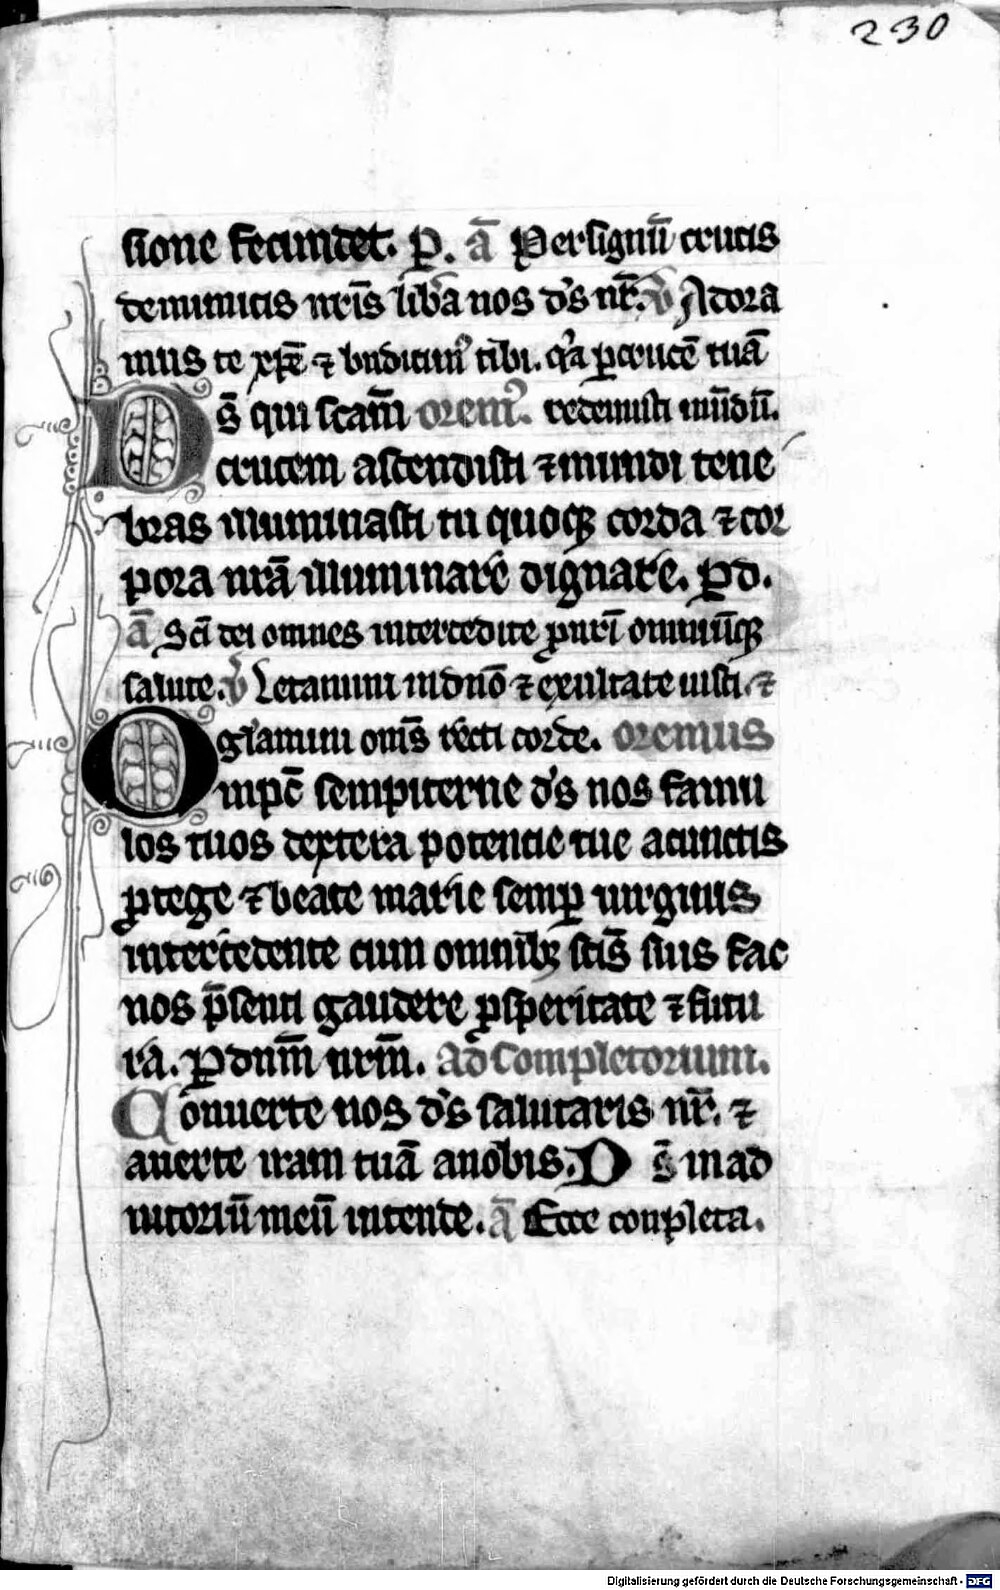 230
sione fecundet. P. ā Per signū crucis
de inimicis nr̄is libͣa nos ds̄ nr̄. V Adora
mus te xp̄e ⁊ bn̄dicimꝰ tibi. qͥa ꝑ crucē tuā
Ds̄ qui scām oremꝰ. redemisti mūdū.
crucem ascendisti ⁊ mundi tene
bras illuminasti tu quoqꝫ corda ⁊ cor
pora nrā illuminare dignare. P d.
ā Sc̄i dei omnes intercedite ꝓ nr̄i omniūqꝫ
salute. V Letamini in dn̄o ⁊ exultate iusti. ⁊
gl̄iamini om̄s recti corde. oremus
Omp̄c sempiterne ds̄ nos famu
los tuos dextera potencie tue a cunctis
ꝓtege ⁊ beate marie semꝑ uirginis
intercedente cum omnibꝫ sc̄is suis fac
nos p̄senti gaudere ꝓsperitate ⁊ futu
ra. P dnm̄ nrm̄. Ad completorium.
Conuerte nos ds̄ salutaris nr̄. ⁊
auerte iram tuā a nobis. Ds̄ in ad
iutoriū meū intende. ā Ecce conpleta.
Digitalisierung gefördert durch die Deutsche Forschungsgemeinschaft - DFG